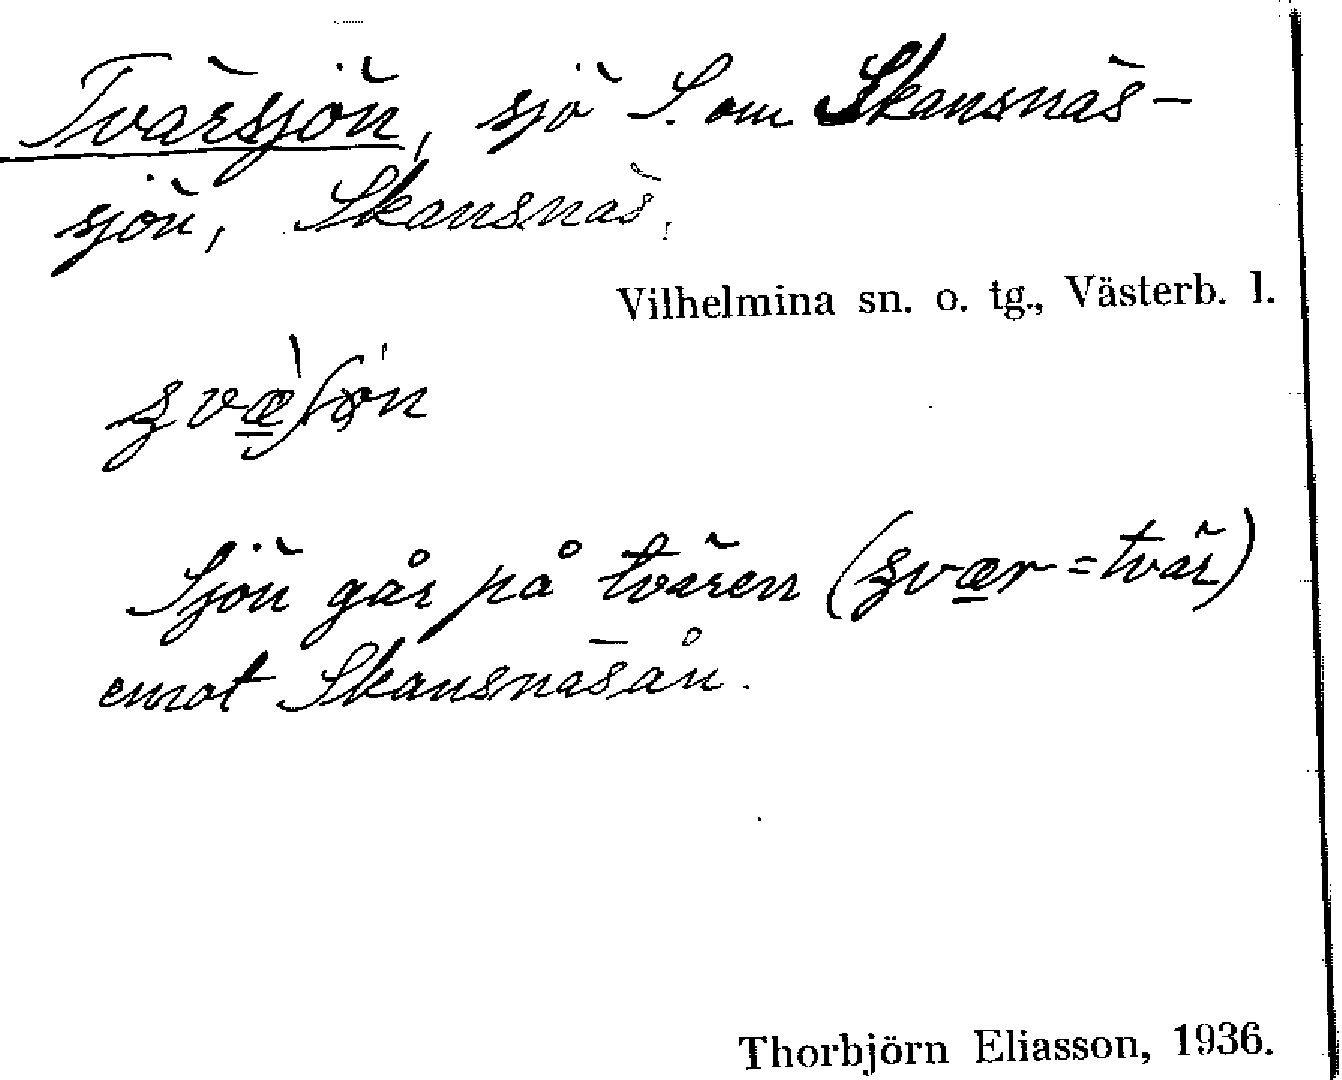 Tvärsjön, sjö S. om Skansnäs-
sjön, Skansnäs.
Vilhelmina sn. o. tg., Västerb. l.
Sjön går på tvären (tvær = tvär)
emot Skansnäsån.
Thorbjörn Eliasson, 1936.